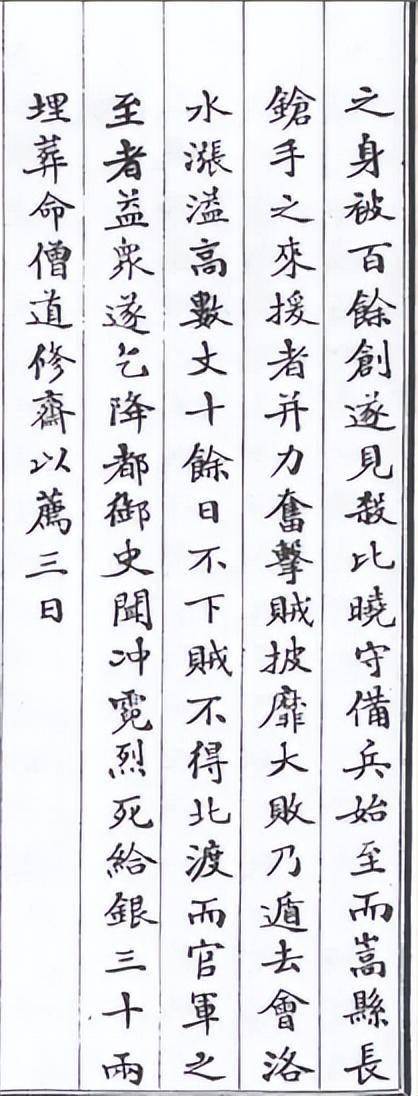 之身被百餘創遂見殺比曉守備兵始至而嵩縣長
鎗手之來援者并力奮擊賊披靡大敗乃遁去會洛
水漲溢高數丈十餘日不下賊不得北渡而官軍之
至者益衆遂乞降都御史聞冲霓烈死給銀三十兩
埋葬命僧道修齋以薦三日